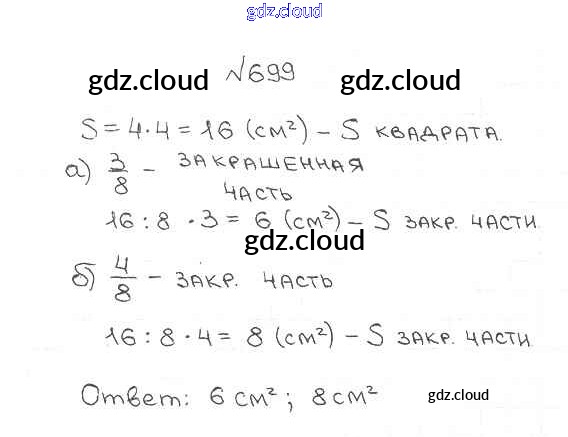 gdz.cloud
№699
gdz.cloud gdz.cloud
S = 4·4 = 16 (см²) – S КВАДРАТА.
а) 3/8 – ЗАКРАШЕННАЯ
ЧАСТЬ
16 : 8 · 3 = 6 (см²) – S ЗАКР. ЧАСТИ
gdz.cloud
б) 4/8 – ЗАКР. ЧАСТЬ
16 : 8 · 4 = 8 (см²) – S ЗАКР. ЧАСТИ
Ответ: 6 см²; 8 см² gdz.cloud